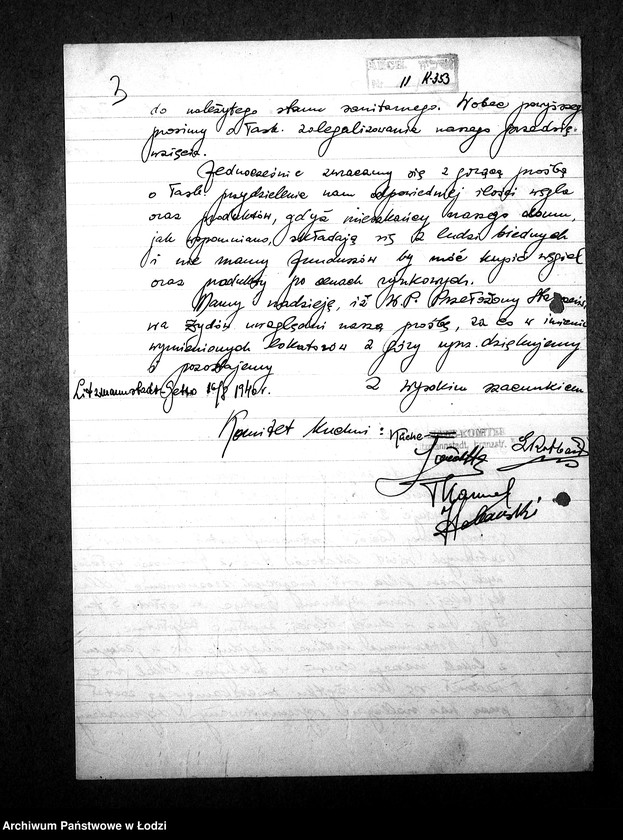 3
11 K-353
do należytego stanu sanitarnego. Wobec powyższego
prosimy o łask. zalegalizowanie naszego przedsię-
wzięcia.
Jednocześnie zwracamy się z gorącą prośbą
o łask. przydzielenie nam odpowiedniej ilości węgla
oraz produktów, gdyż mieszkańcy naszego domu,
jak wspomniano, składają się z ludzi biednych
i nie mamy funduszów by móc kupić węgiel
oraz produkty po cenach rynkowych.
Mamy nadzieję, iż W.P. Przełożony
wa Żydów uwzględni naszą prośbę, za co w imieniu
wymienionych lokatorów z góry uprz. dziękujemy
i pozostajemy
Litzmannstadt-Getto 16/8 1940 r. Z wysokim szacunkiem
Komitet kuchni: Küche
Archiwum Państwowe w Łodzi